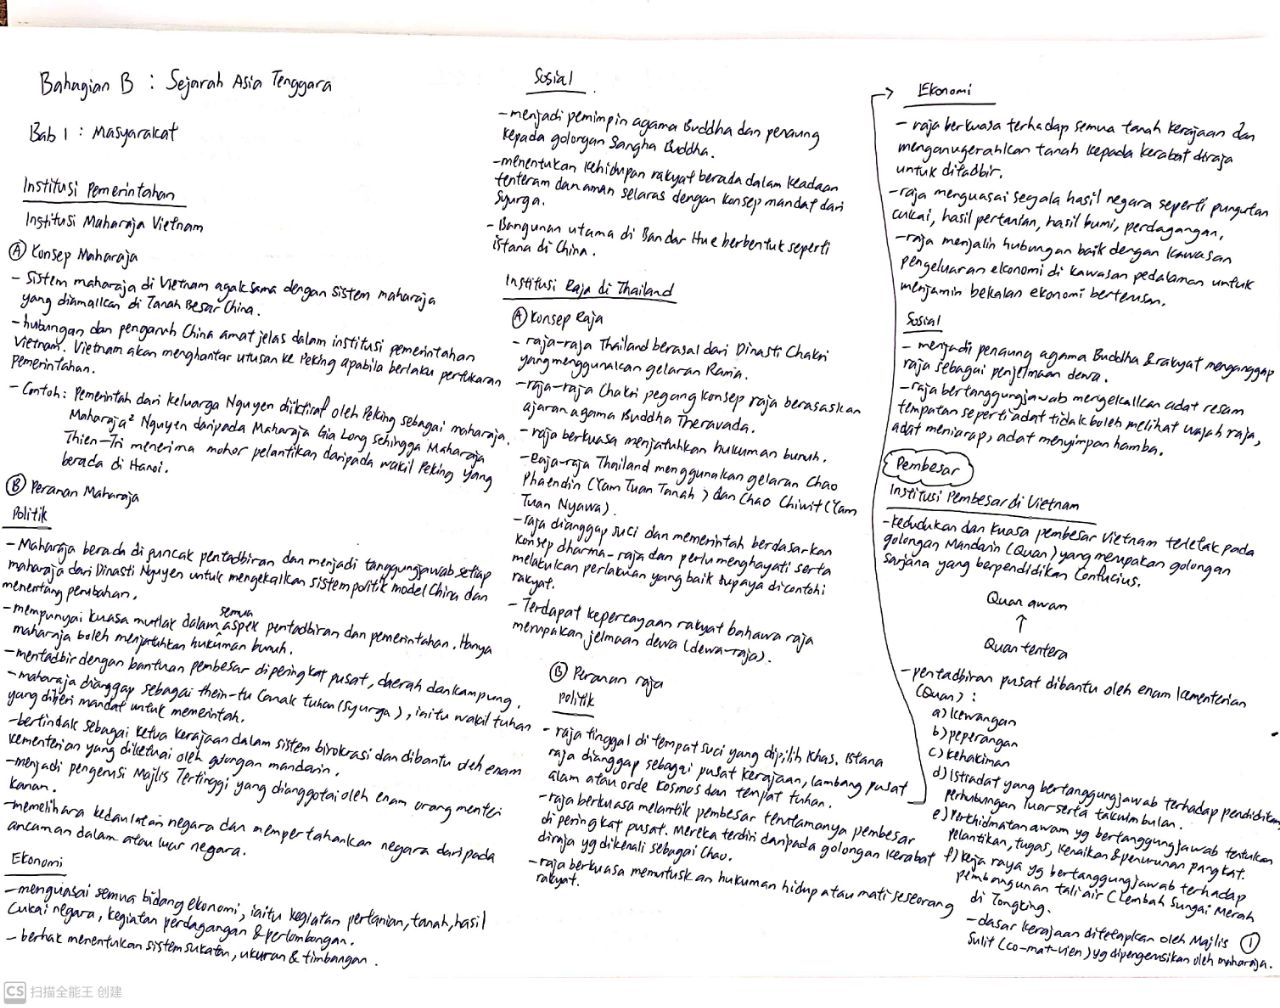 Bahagian B : Sejarah Asia Tenggara
Bab 1 : Masyarakat
Institusi Pemerintahan
Institusi Maharaja Vietnam
Ⓐ Konsep Maharaja
- Sistem maharaja di Vietnam agak sama dengan sistem maharaja
yang diamalkan di Tanah Besar China.
- hubungan dan pengaruh China amat jelas dalam institusi pemerintahan
Vietnam. Vietnam akan menghantar utusan ke Peking apabila berlaku pertukaran
pemerintahan.
- Contoh: Pemerintah dari keluarga Nguyen diiktiraf oleh Peking sebagai maharaja.
Maharaja² Nguyen daripada Maharaja Gia Long sehingga Maharaja
Thien-Tri menerima mohor pelantikan daripada wakil Peking yang
berada di Hanoi.
Ⓑ Peranan Maharaja
Politik
- Maharaja berada di puncak pentadbiran dan menjadi tanggungjawab setiap
maharaja dari Dinasti Nguyen untuk mengekalkan sistem politik model China dan
menentang perubahan.
- mempunyai kuasa mutlak dalam semua aspek pentadbiran dan pemerintahan. Hanya
maharaja boleh menjatuhkan hukuman bunuh.
- mentadbir dengan bantuan pembesar di peringkat pusat, daerah dan kampung.
- maharaja dianggap sebagai thein-tu (anak tuhan (syurga), iaitu wakil tuhan
yang diberi mandat untuk memerintah.
- bertindak sebagai ketua kerajaan dalam sistem birokrasi dan dibantu oleh enam
kementerian yang diketuai oleh golongan mandarin.
- menjadi pengerusi Majlis Tertinggi yang dianggotai oleh enam orang menteri
kanan.
- memelihara kedaulatan negara dan mempertahankan negara daripada
ancaman dalam atau luar negara.
Ekonomi
- menguasai semua bidang ekonomi, iaitu kegiatan pertanian, tanah, hasil
cukai negara, kegiatan perdagangan & perlombongan.
- berhak menentukan sistem sukatan, ukuran & timbangan.
Sosial
- menjadi pemimpin agama Buddha dan penaung
kepada golongan Sangha Buddha.
- menentukan kehidupan rakyat berada dalam keadaan
tenteram dan aman selaras dengan konsep mandat dari
syurga.
- Bangunan utama di Bandar Hue berbentuk seperti
istana di China.
Institusi Raja di Thailand
Ⓐ Konsep Raja
- raja-raja Thailand berasal dari Dinasti Chakri
yang menggunakan gelaran Rama.
- raja-raja Chakri pegang konsep raja berasaskan
ajaran agama Buddha Theravada.
- raja berkuasa menjatuhkan hukuman bunuh.
- Raja-raja Thailand menggunakan gelaran Chao
Phaendin (Yam Tuan Tanah) dan Chao Chiwit (Yam
Tuan Nyawa).
- raja dianggap suci dan memerintah berdasarkan
konsep dharma-raja dan perlu menghayati serta
melakukan perlakuan yang baik supaya dicontohi
rakyat.
- Terdapat kepercayaan rakyat bahawa raja
merupakan jelmaan dewa (dewa-raja).
Ⓑ Peranan raja
Politik
- raja tinggal di tempat suci yang dipilih khas. Istana
raja dianggap sebagai pusat kerajaan, lambang pusat
alam atau orde kosmos dan tempat tuhan.
- raja berkuasa melantik pembesar terutamanya pembesar
di peringkat pusat. Mereka terdiri daripada golongan kerabat
diraja yg dikenali sebagai Chao.
- raja berkuasa memutuskan hukuman hidup atau mati seseorang
rakyat.
Ekonomi
- raja berkuasa terhadap semua tanah kerajaan dan
menganugerahkan tanah kepada kerabat diraja
untuk ditadbir.
- raja menguasai segala hasil negara seperti pungutan
cukai, hasil pertanian, hasil bumi, perdagangan,
- raja menjalin hubungan baik dengan kawasan
pengeluaran ekonomi di kawasan pedalaman untuk
menjamin bekalan ekonomi berterusan.
Sosial
- menjadi penaung agama Buddha & rakyat menganggap
raja sebagai penjelmaan dewa.
- raja bertanggungjawab mengekalkan adat resam
tempatan seperti adat tidak boleh melihat wajah raja,
adat meniarap, adat menyimpan hamba.
Pembesar
Institusi Pembesar di Vietnam
- kedudukan dan kuasa pembesar Vietnam terletak pada
golongan Mandarin (Quan) yang merupakan golongan
sarjana yang berpendidikan Confucius.
Quan awam
↑
Quan tentera
- pentadbiran pusat dibantu oleh enam kementerian
(Quan) :
a) kewangan
b) peperangan
c) kehakiman
d) Istiadat yang bertanggungjawab terhadap pendidikan,
perhubungan luar serta takwim bulan.
e) Perkhidmatan awam yg bertanggungjawab tentukan
pelantikan, tugas, kenaikan & penurunan pangkat.
f) kerja raya yg bertanggungjawab terhadap
pembangunan tali air (Lembah Sungai Merah
di Tongking.
- dasar kerajaan ditetapkan oleh Majlis
Sulit (co-mat-vien) yg dipengerusikan oleh maharaja.
①
CS 扫描全能王 创建